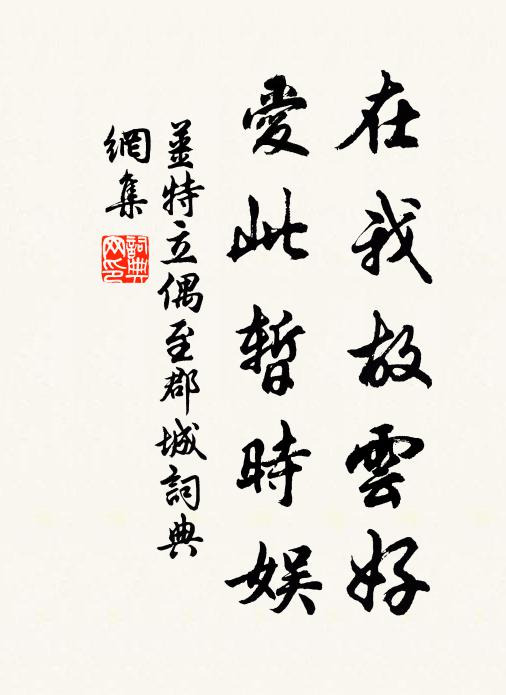 在我故雲好
愛此暫時娛
姜特立偶至郡城詞典
網集
詞典
网印